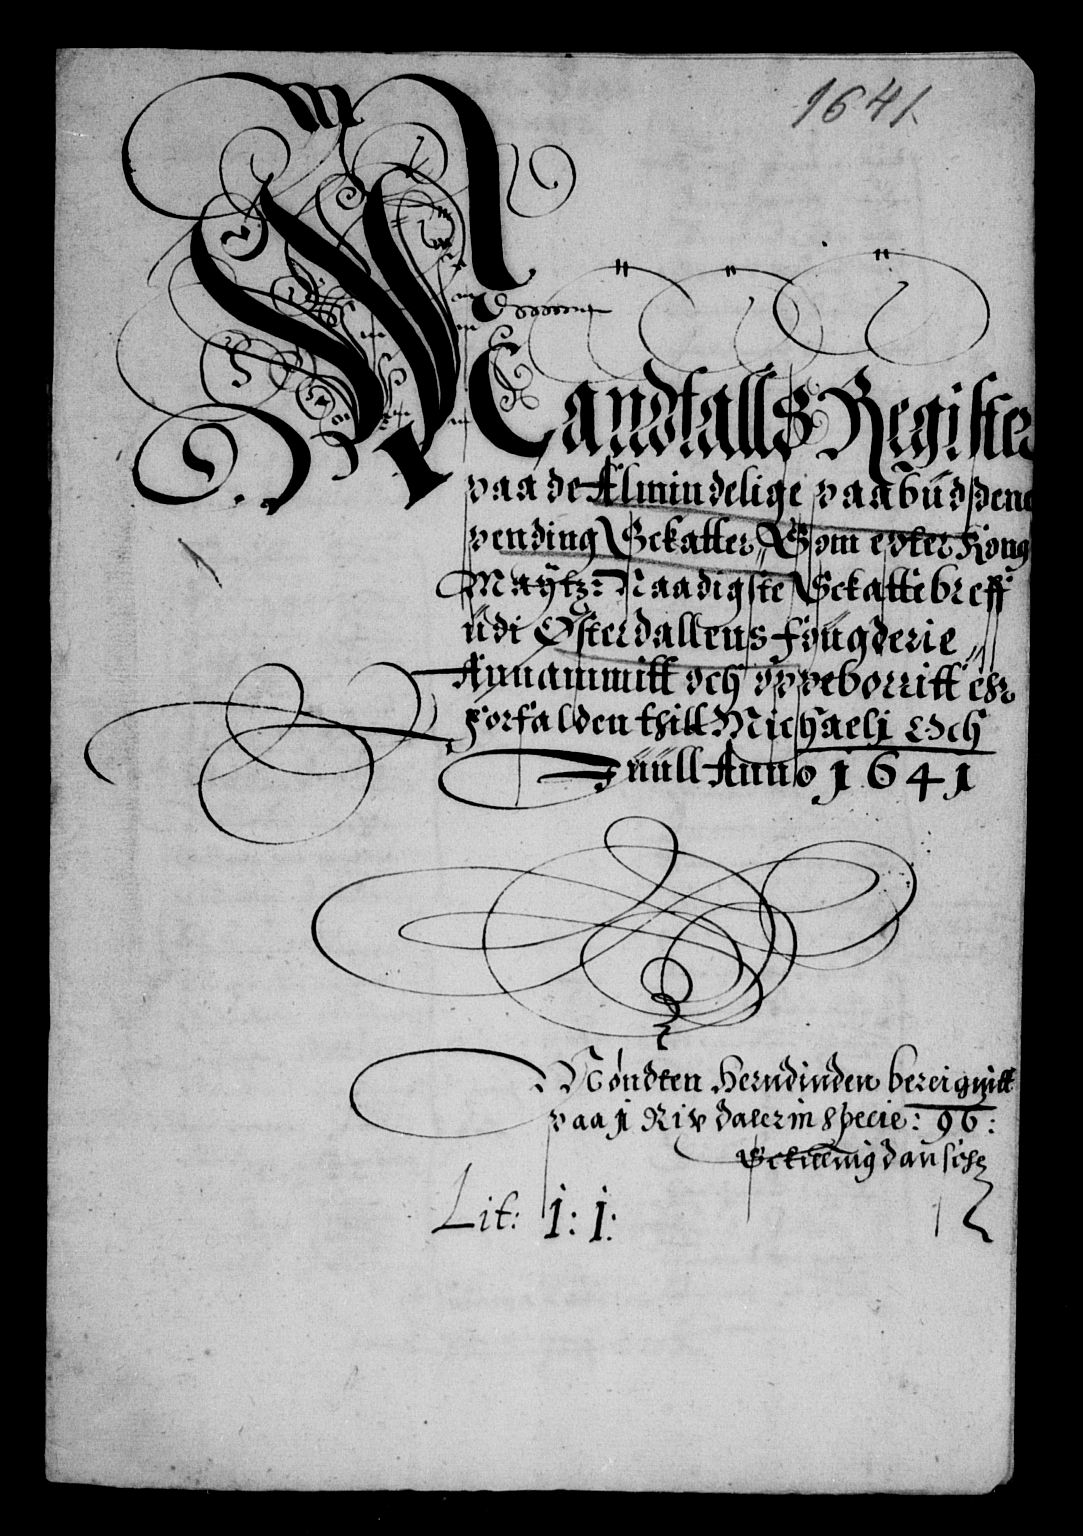 1641
Mandtalls Register
paa de Almindelige paabudsdene
pending Sckatter, Som epter Kong
Maytz: Naadigste Sckattebreff
udi Østerdallens fougderie
Annammitt och oppeborritt ehr
Forfalden thill Michaelj Och
Juull Anno 1641
Møndten herudinden bereignitt
paa j Rix daler in specie: 96:
Sckilling dansche
Lit: j: j: